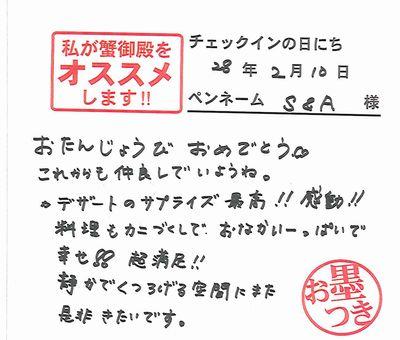 私が蟹御殿を
オススメ
します!!
チェックインの日にち
28 年 2月 10 日
ペンネーム S&A 様
おたんじょうび おめでとう
これからも仲良しでいようね。
。デザートのサプライズ 最高!! 感動!!
料理もカニづくしで おなかいーっぱいで
幸せ!! 超満足!!
静かでくつろげる空間にまた
是非 きたいです。
お墨つき